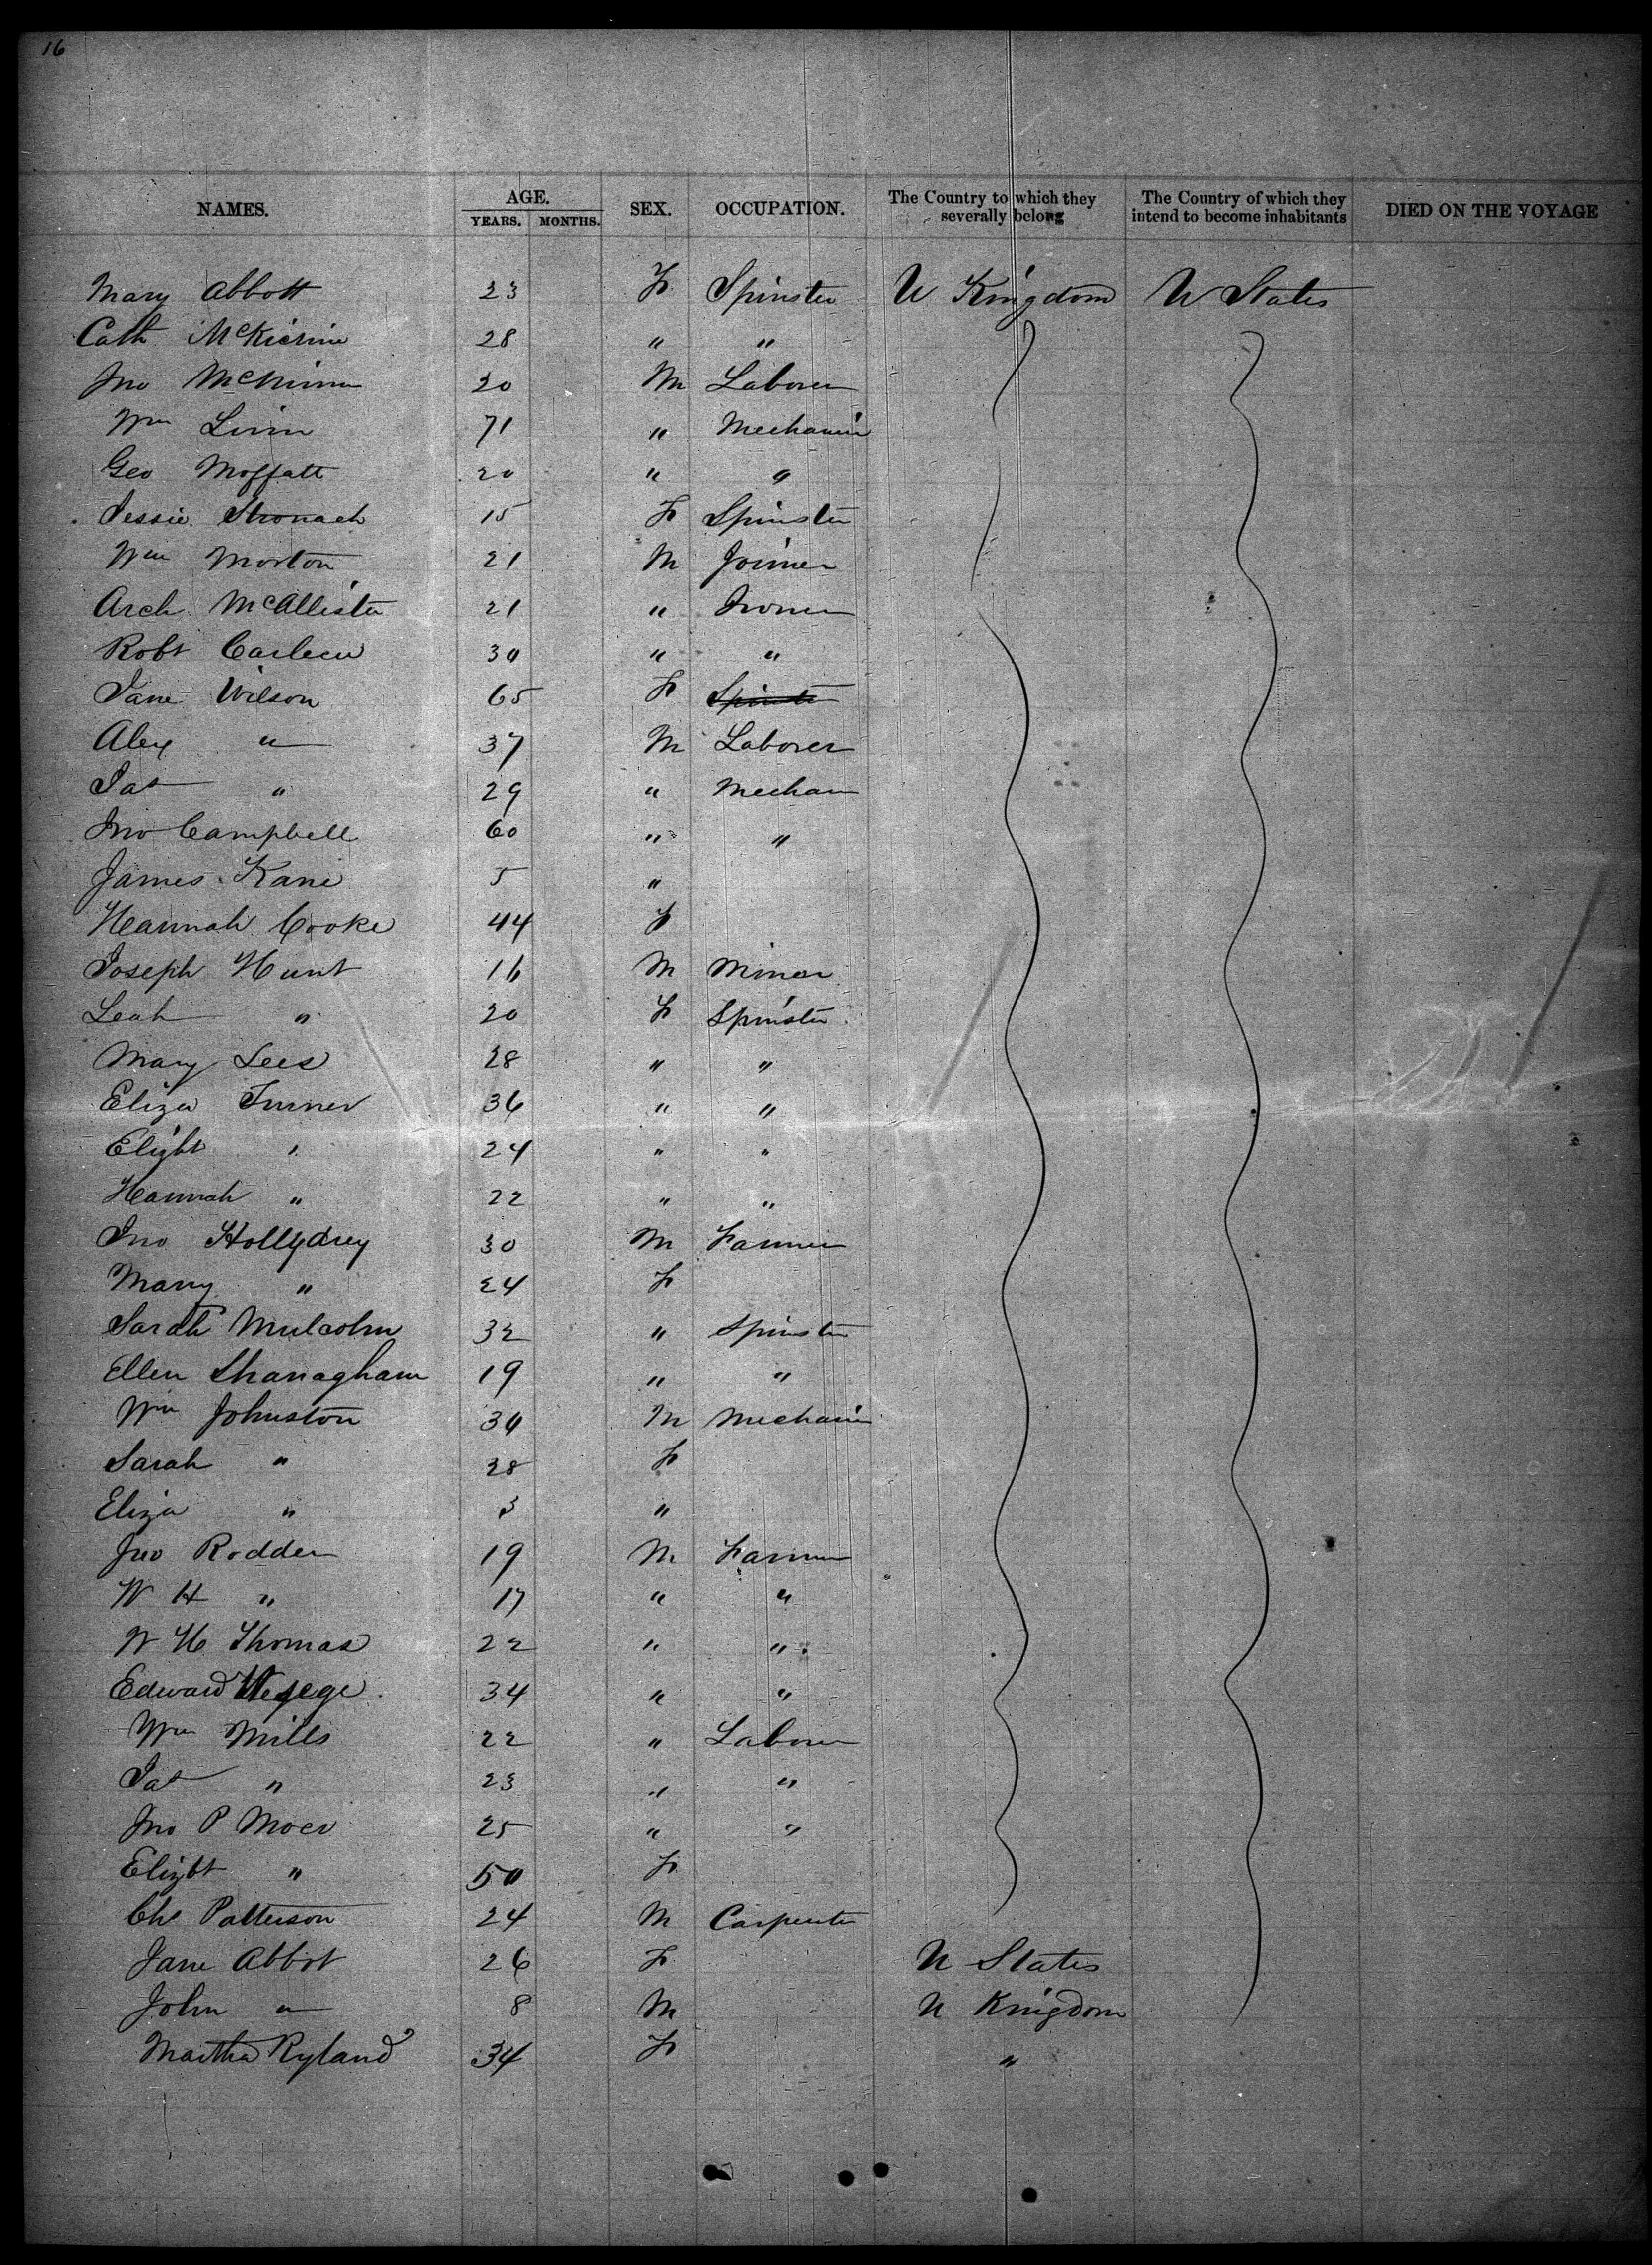 16
NAMES. AGE. YEARS. MONTHS. SEX. OCCUPATION. The Country to which they severally belong The Country of which they intend to become inhabitants DIED ON THE VOYAGE
Mary Abbott 23 F Spinster U Kingdom U States
Cath 28 " "
Jno 20 M Laborer
Wm 71 " Mechanic
Geo Moffatt 20 " "
Jessie Stronach 15 F Spinster
Wm Morton 21 M Joiner
Arch McAllister 21 "
Robt 30 " "
Jane Wilson 65 F Spinster
Alex " 37 M Laborer
Jas " 29 " Mechan
Jno Campbell 60 " "
James Kane 5 "
Hannah Cooke 44 F
Joseph Hunt 16 M Miner
Leah " 20 F Spinster
Mary Lees 28 " "
Eliza Turner 36 " "
Elizbt " 24 " "
Hannah " 22 " "
Jno Hollydrey 30 M Farmer
Mary " 24 F
Sarah Mulcolm 32 " Spinster
Ellen Shanagham 19 " "
Wm Johnston 30 M Mechanic
Sarah " 28 F
Eliza " 3 "
Jno Rodden 19 M Farmer
W H " 17 " "
W H Thomas 22 " "
Edward 34 " "
Wm Mills 22 " Laborer
Jas " 23 " "
Jno P 25 " "
Elizbt " 50 F
Chs Patterson 24 M Carpenter
Jane Abbot 26 F U States
John " 8 M U Kingdom
Martha Ryland 34 F "